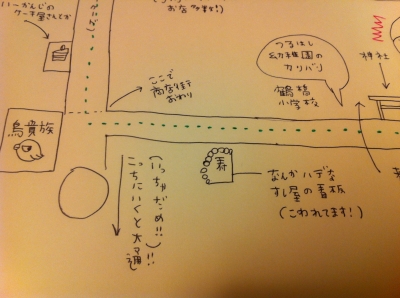 お店やります!
いーかんじの
ケーキ屋さんてか
ここで
商店街
おわり
つるはし
幼稚園の
カリバリ
鶴橋
小学校
神社
鳥貴族
(いっちゃだめ!!)
こっちにいくと大マ通し!!
寿
なんかハデな
すし屋の看板
(こわれてます!)